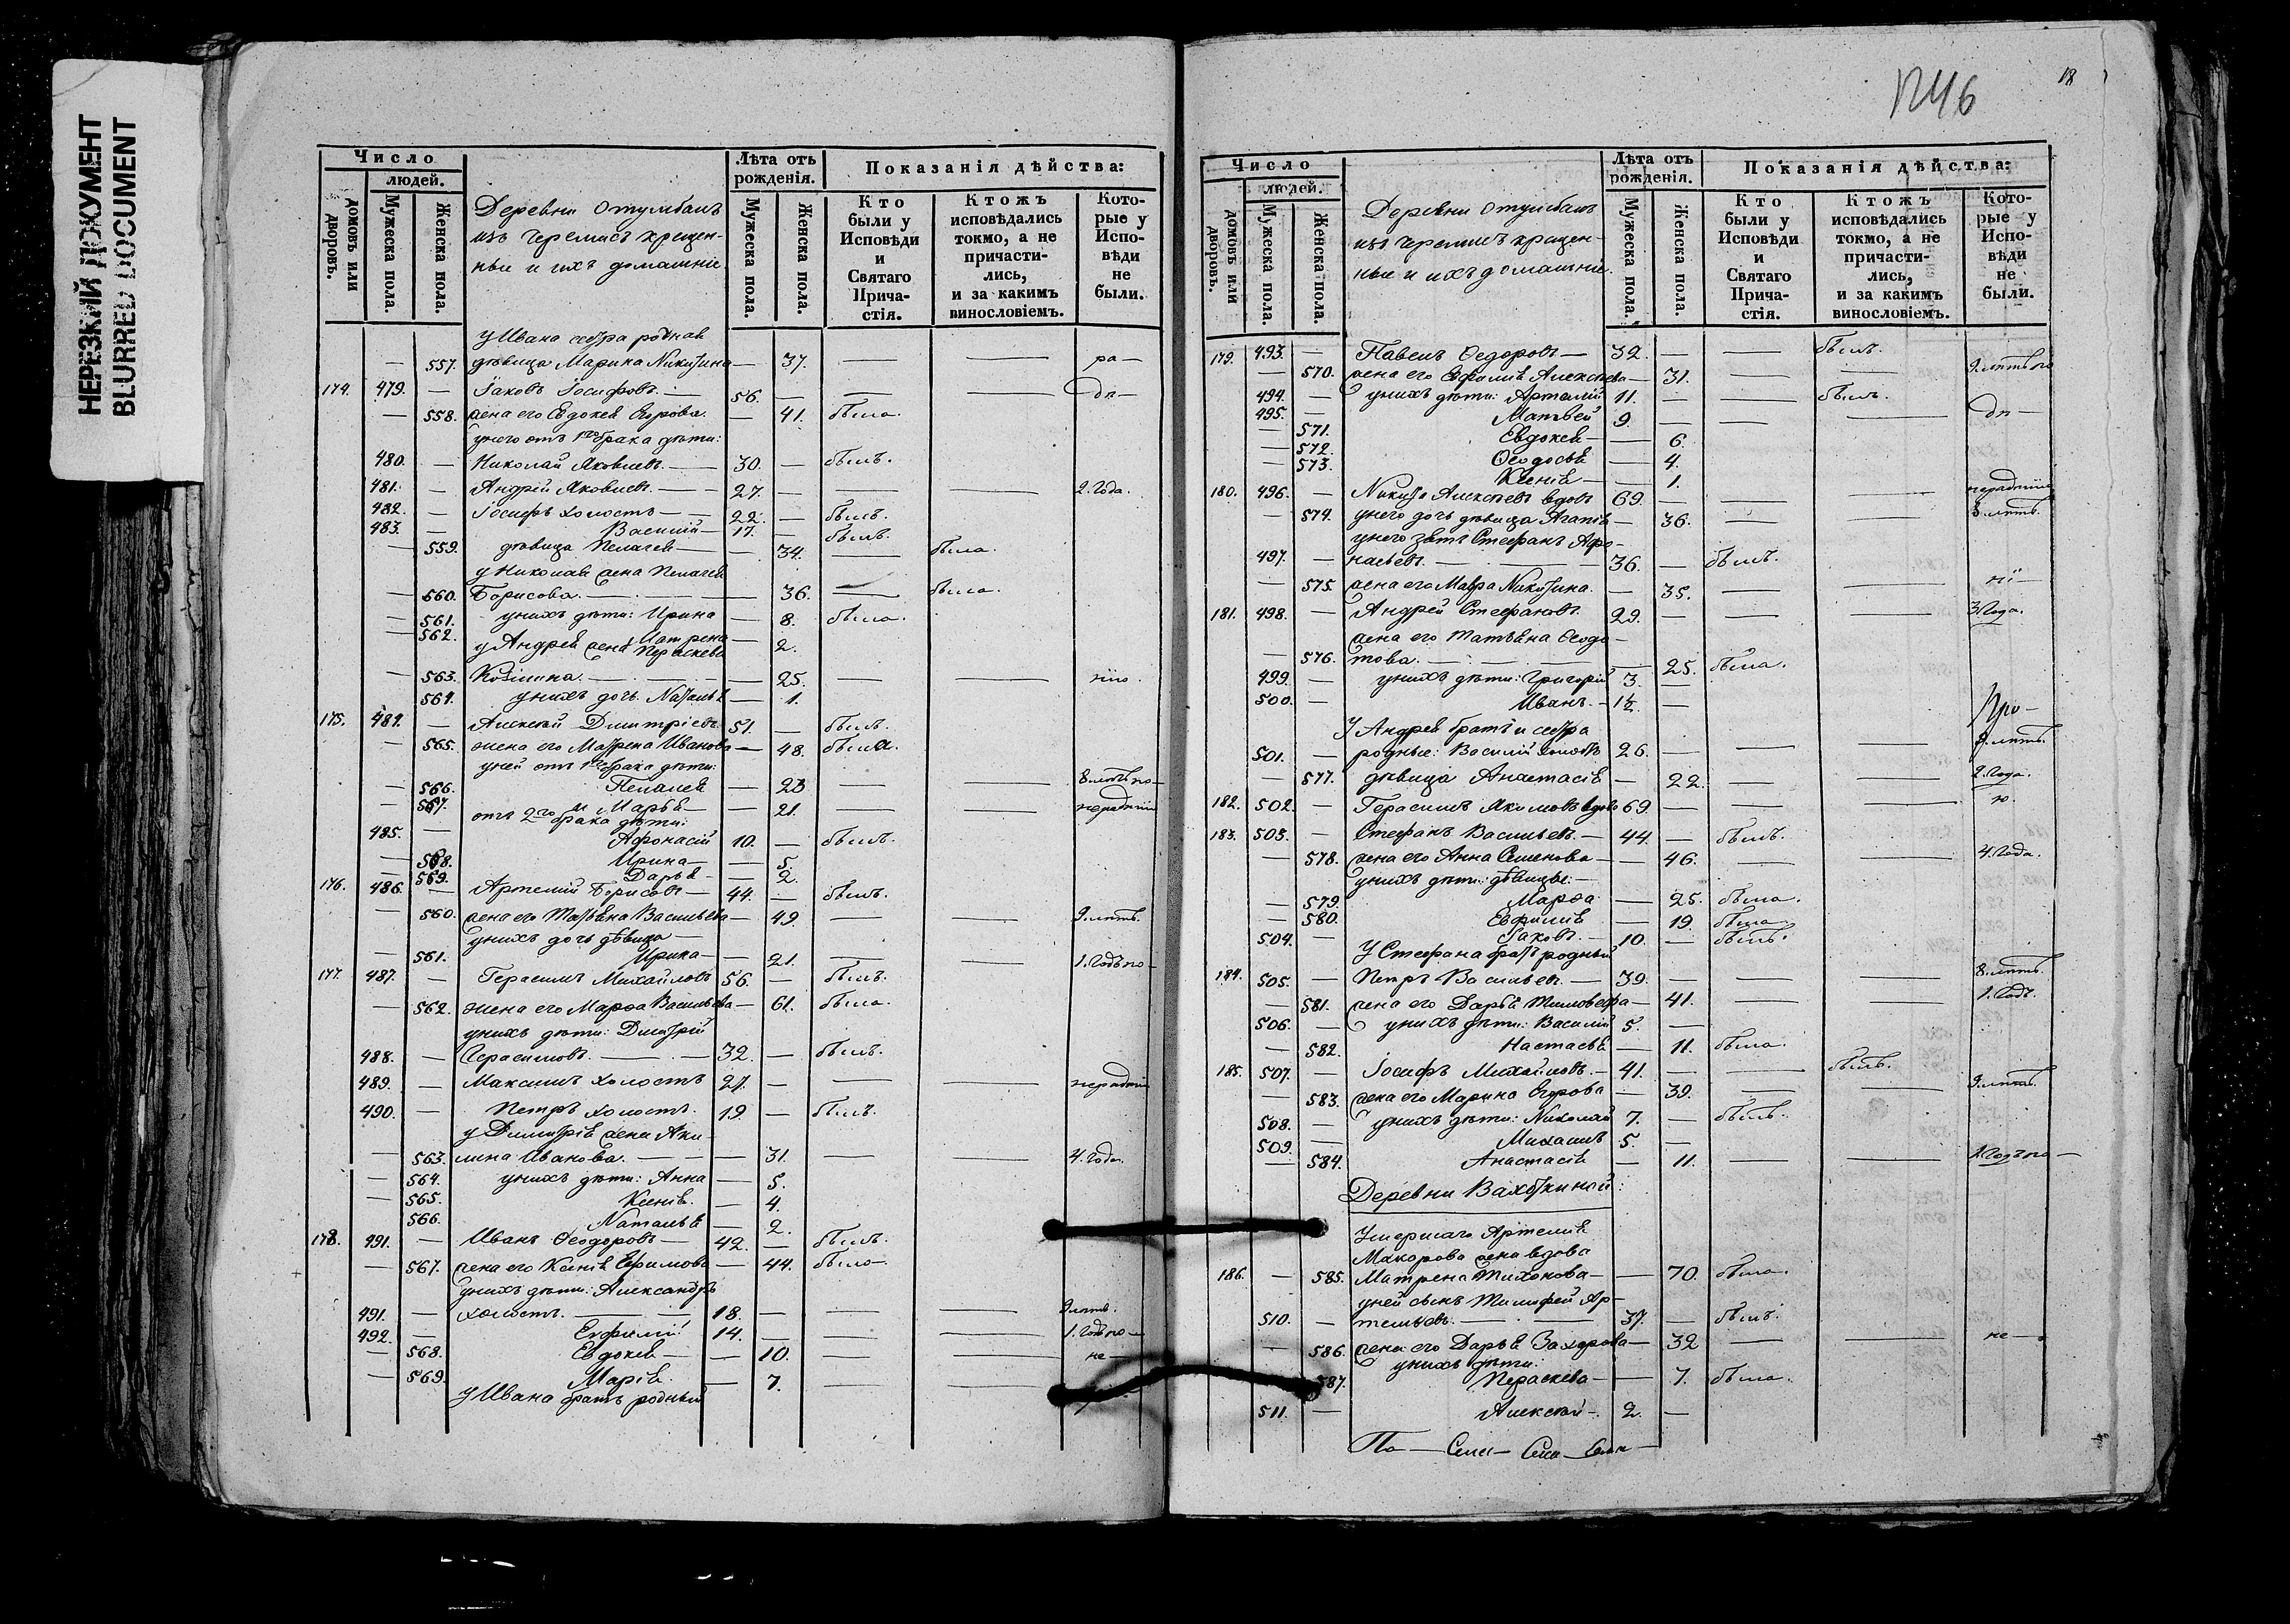 НЕРЕЗКИЙ ДОКУМЕНТ
BLURRED DOCUMENT
Число
людей.
домовъ или дворовъ.
Мужеска пола.
Женска пола.
Деревни Отумбалъ
изъ черемисъ крещен-
ные и ихъ домашніе
Лѣта отъ рожденія.
Мужеска пола.
Женска пола.
Показанія дѣйства:
Кто были у Исповѣди и Святаго Прича-стія.
Ктожъ исповѣдались токмо, а не причасти-лись, и за какимъ винословіемъ.
Кото-рые у Испо-вѣди не были.
у Ивана сестра родная
— 557. дѣвица Марина Никитина — 37. — — ра —
174. 479. — Іаковъ Іосифовъ. — 56. — — — дп —
— 558. жена его Евдокея Егорова. — 41. была.
у него отъ 1го брака дѣти:
480. — Николай Яковлевъ. — 30. — былъ.
481. — Андрей Яковлевъ. — 27. — — — 2. Года.
482. — Іосифъ холостъ — 22. — былъ.
483. — Василій — 17. — былъ.
— 559. дѣвица Пелагея — — 34. — была.
у Николая жена Пелагея
— 560. Борисова. — — 36. — была.
— 561. у нихъ дѣти: Ирина — 8. была.
— 562. Матрена — 2.
у Андрея жена Параскева
— 563. Козмина. — — 25. — —
564. у нихъ дочь Наталья — 1.
175. 484. — Алексѣй Димитріевъ 51. — былъ.
— 565. жена его Матрена Иванова — 48. была.
у ней отъ 1го брака дѣти:
— 566. Пелагея — 23 — — 8. лѣтъ по —
— 567. и Марья — — 21. — — нерадѣнію
отъ 2го брака дѣти:
485. — Афонасій 10. — былъ.
— 568. Ирина — — 5.
— 569. Дарья — — 2.
176. 486. — Артемій Борисовъ — 44. — былъ.
— 560. жена его Татьяна Васильева — 49. — — 9. лѣтъ.
у нихъ дочь дѣвица —
— 561. Ирина — — 21. — — 1. Годъ по —
177. 487. — Герасимъ Михайловъ 56. — былъ.
— 562. жена его Марѳа Васильева — 61. была.
у нихъ дѣти: Дмитрій
488. — Герасимовъ. — 32. — былъ.
489. — Максимъ холостъ 27. — — — нерадѣнію
490. — Петръ холостъ. 19 — былъ.
у Димитрія жена Аку-
— 563. лина Иванова. — — 31. — — 4. Года.
— 564. у нихъ дѣти: Анна — 5.
— 565. Ксенія. — 4.
566. Наталья — 2.
178. 491. — Иванъ Ѳеодоровъ — 42. — былъ.
— 567. жена его Ксенія Ефимова — 44. была
у нихъ дѣти: Александръ
491. — холостъ. — 18. — — — 9 лѣтъ.
492. — Евфимій 14. — — — 1. Годъ по —
— 568. Евдокея — — 10. — — не —
— 569. Марія — 7. — —
у Ивана братъ родный
18
Число
людей.
домовъ или дворовъ.
Мужеска пола.
Женска пола.
Деревни Отумбалъ
изъ черемисъ крещен-
ные и ихъ домашніе.
Лѣта отъ рожденія.
Мужеска пола.
Женска пола.
Показанія дѣйства:
Кто были у Исповѣди и Святаго Прича-стія.
Ктожъ исповѣдались токмо, а не причасти-лись, и за какимъ винословіемъ.
Кото-рые у Испо-вѣди не были.
179. 493. — Павелъ Ѳедоровъ — 32. — — былъ.
— 570. жена его Евфимія Алексѣева — 31. — — 9. лѣтъ по
494. — у нихъ дѣти: Артемій 11. — — былъ.
495. — Матвей 9. — — — дп —
— 571. Евдокея — — 6.
— 572. Ѳеодосья — 4.
— 573. Ксенія — — 1.
180. 496. — Никита Алексѣевъ вдовъ 69. — — — нерадѣнію
— 574. у него дочь дѣвица Агапія — 36. — — 8. лѣтъ.
у него зять Стефанъ Афо-
497. — насьевъ. — 36. — былъ.
— 575. жена его Мавра Никитина. — 35. — — ні —
181. 498. — Андрей Стефановъ 29. — — — 3 Года.
жена его Татьяна Ѳедо-
— 576. това. — — 25. была.
499. — у нихъ дѣти: Григорій 3. —
500. — Иванъ. — 1½. —
У Андрея братъ и сестра
501. — родные: Василій холостъ 26. — — — 9. лѣтъ.
— 577. дѣвица Анастасія — 22. — — 2. Года.
182. 502. — Герасимъ Якимовъ вдовъ 69 — — — ю.
183. 503. — Стефанъ Васильевъ. — 44. — былъ.
— 578. жена его Анна Семенова — — 46. — — 4. Года.
у нихъ дѣти: дѣвицы: —
— 579. Марѳа — 25. была.
— 580. Евфимія — 19. была.
504. — Іаковъ. — 10. — былъ.
У Стефана братъ родный
184. 505. — Петръ Васильев. — 39. — — — 8. лѣтъ.
— 581. жена его Дарья Тимофеева — 41. — — 1. Годъ.
506. — у нихъ дѣти: Василій 5. —
— 582. Настасья — 11. была.
185. 507. — Іосифъ Михайловъ. — 41. — — былъ.
— 583. жена его Марина Егорова — 39. — — 9. лѣтъ.
508. — у нихъ дѣти: Николай 7. — былъ.
509. — Михаилъ 5. —
— 584. Анастасія — 11. — — 1. Годъ по —
Деревни Вахоткиной:
Умершаго Артемія
Макарова жена вдова
186. — 585. Матрена Тихонова — — 70. была.
у ней сынъ Тимофей Ар-
510. — темьевъ. — 37. — былъ.
— 586. жена его Дарья Захарова — 32 — — не —
у нихъ дѣти:
587. Параскева — — 7. была.
511. — Алексѣй — 2. —